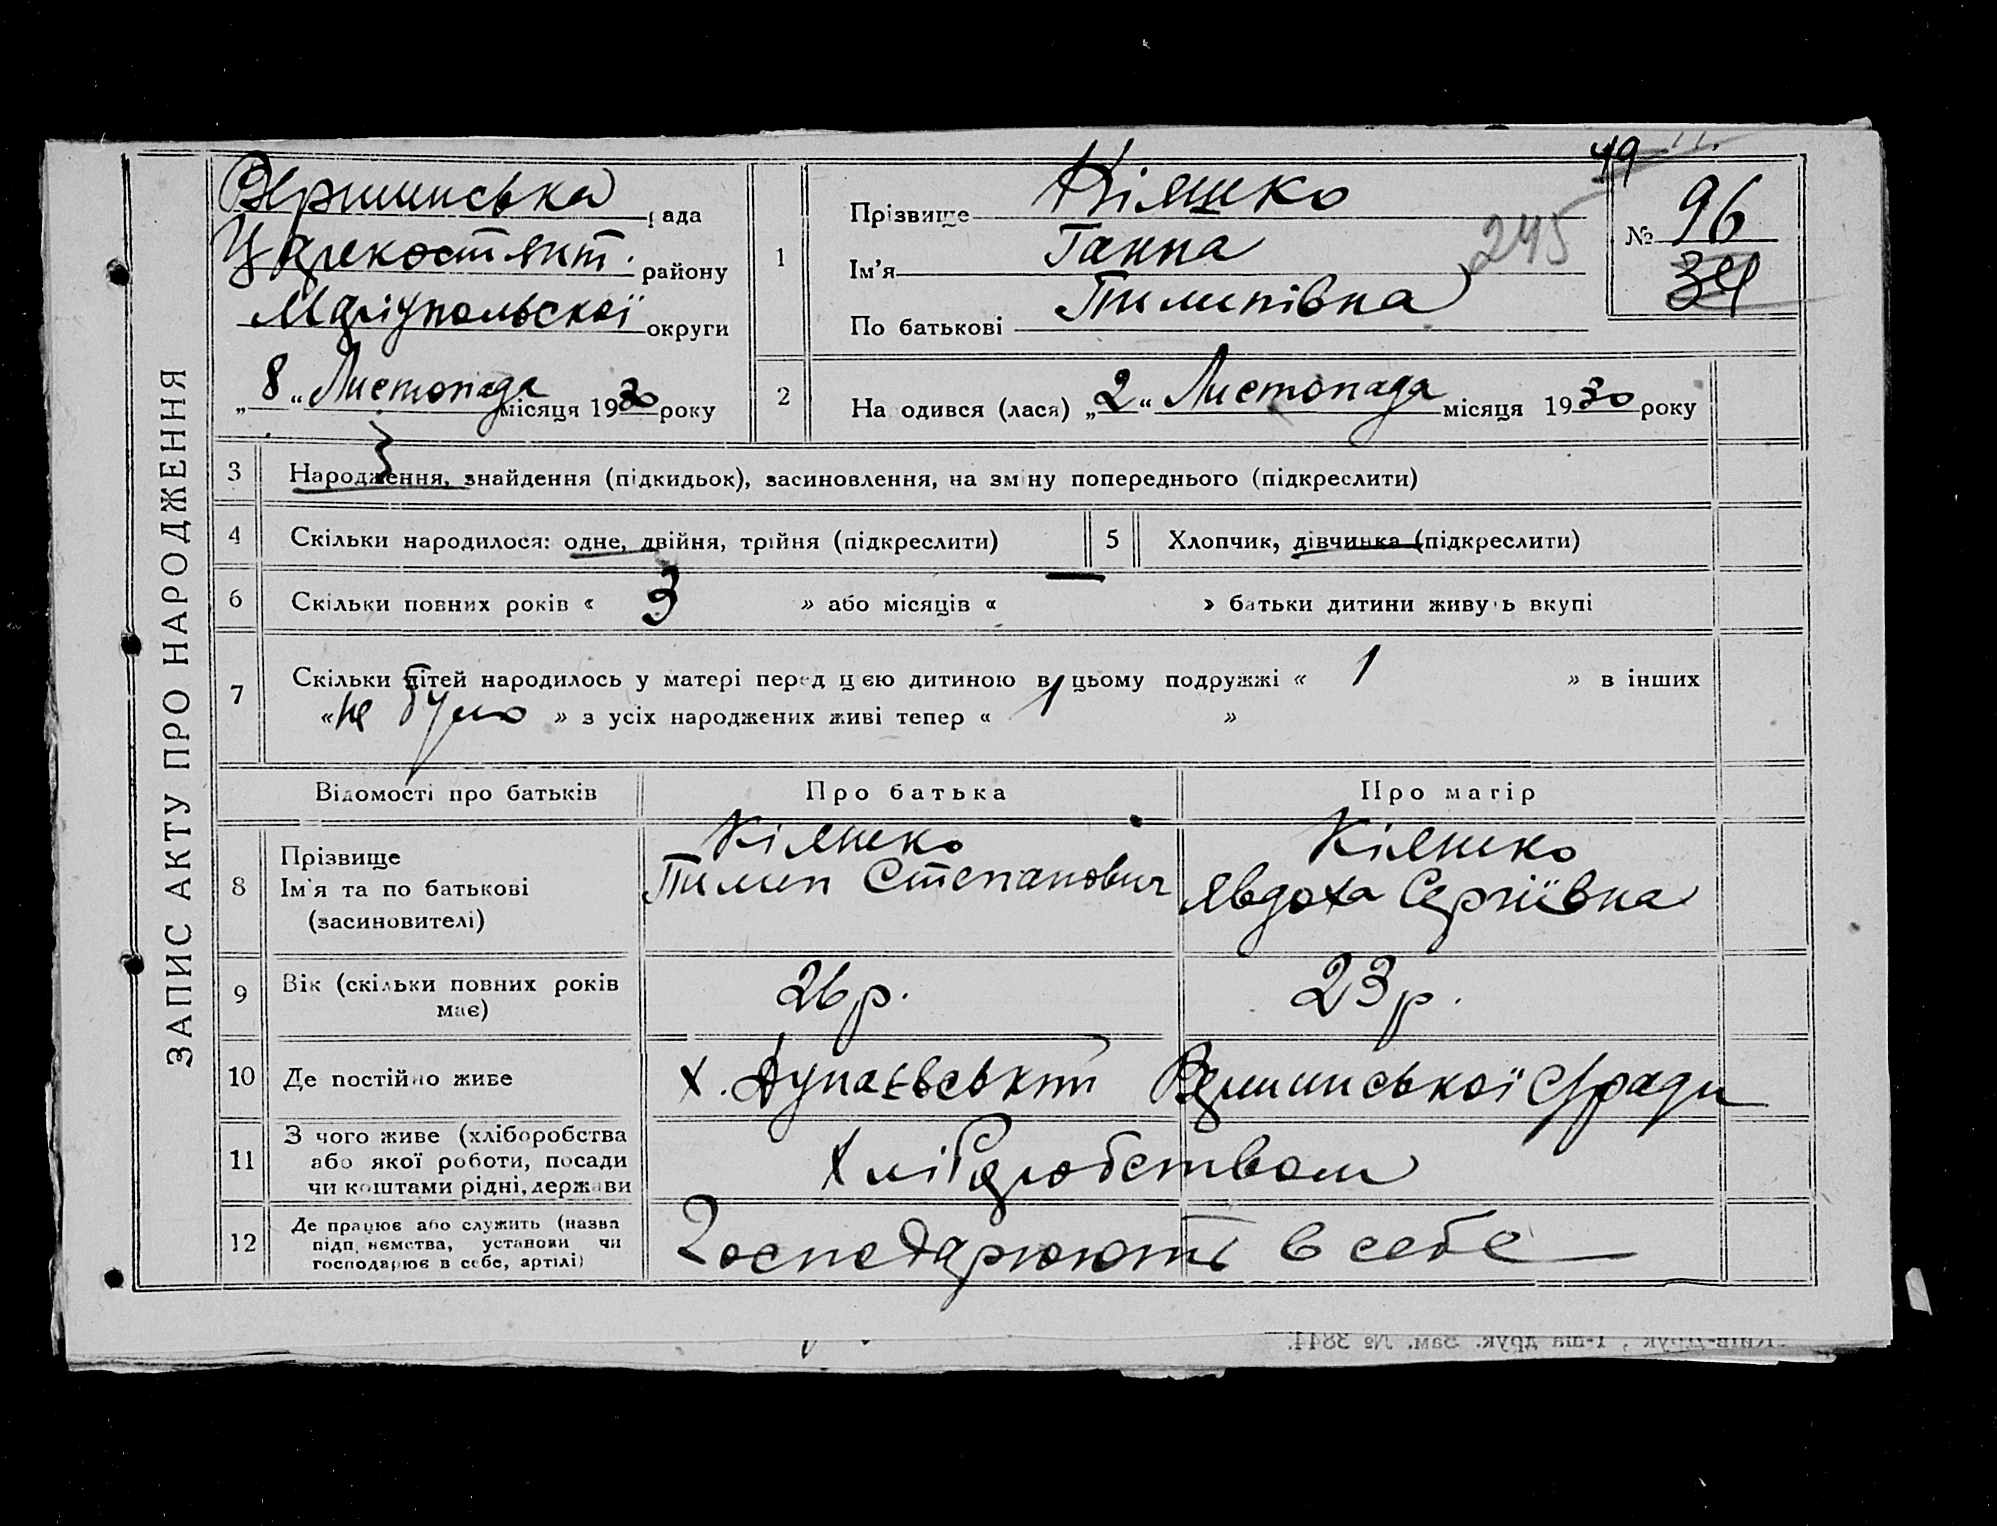 ЗАПИС АКТУ ПРО НАРОДЖЕННЯ
Вершинська рада
Царекостянт. району
Маріупольської округи
„8“ Листопада місяця 1930 року
49
№ 96
34
245
1 Прізвище Кіяшко
Ім'я Ганна
По батькові Пилипівна
2 На одився (лася) „2“ Листопада місяця 1930 року
3 Народження, знайдення (підкидьок), засиновлення, на зміну попереднього (підкреслити)
4 Скільки народилося: одне, двійня, трійня (підкреслити) 5 Хлопчик, дівчинка (підкреслити)
6 Скільки повних років « 3 » або місяців « — » батьки дитини живуть вкупі
7 Скільки дітей народилось у матері перед цією дитиною в цьому подружжі « 1 » в інших
« не було » з усіх народжених живі тепер « 1 »
Відомості про батьків Про батька Про матір
8 Прізвище Кіяшко Кіяшко
Ім'я та по батькові Пилип Степанович Явдоха Сергіївна
(засиновителі)
9 Вік (скільки повних років має) 26 р. 23 р.
10 Де постійно живе х. Дунаєвський Вершинської с/ради
11 З чого живе (хліборобства
або якої роботи, посади
чи коштами рідні, держави Хліборобством
12 Де працює або служить (назва
підп. иємства, установи чи
господарює в себе, артілі) Господарюють в себе
Київ-Друк, 1-ша друк. Зам. № 3844.